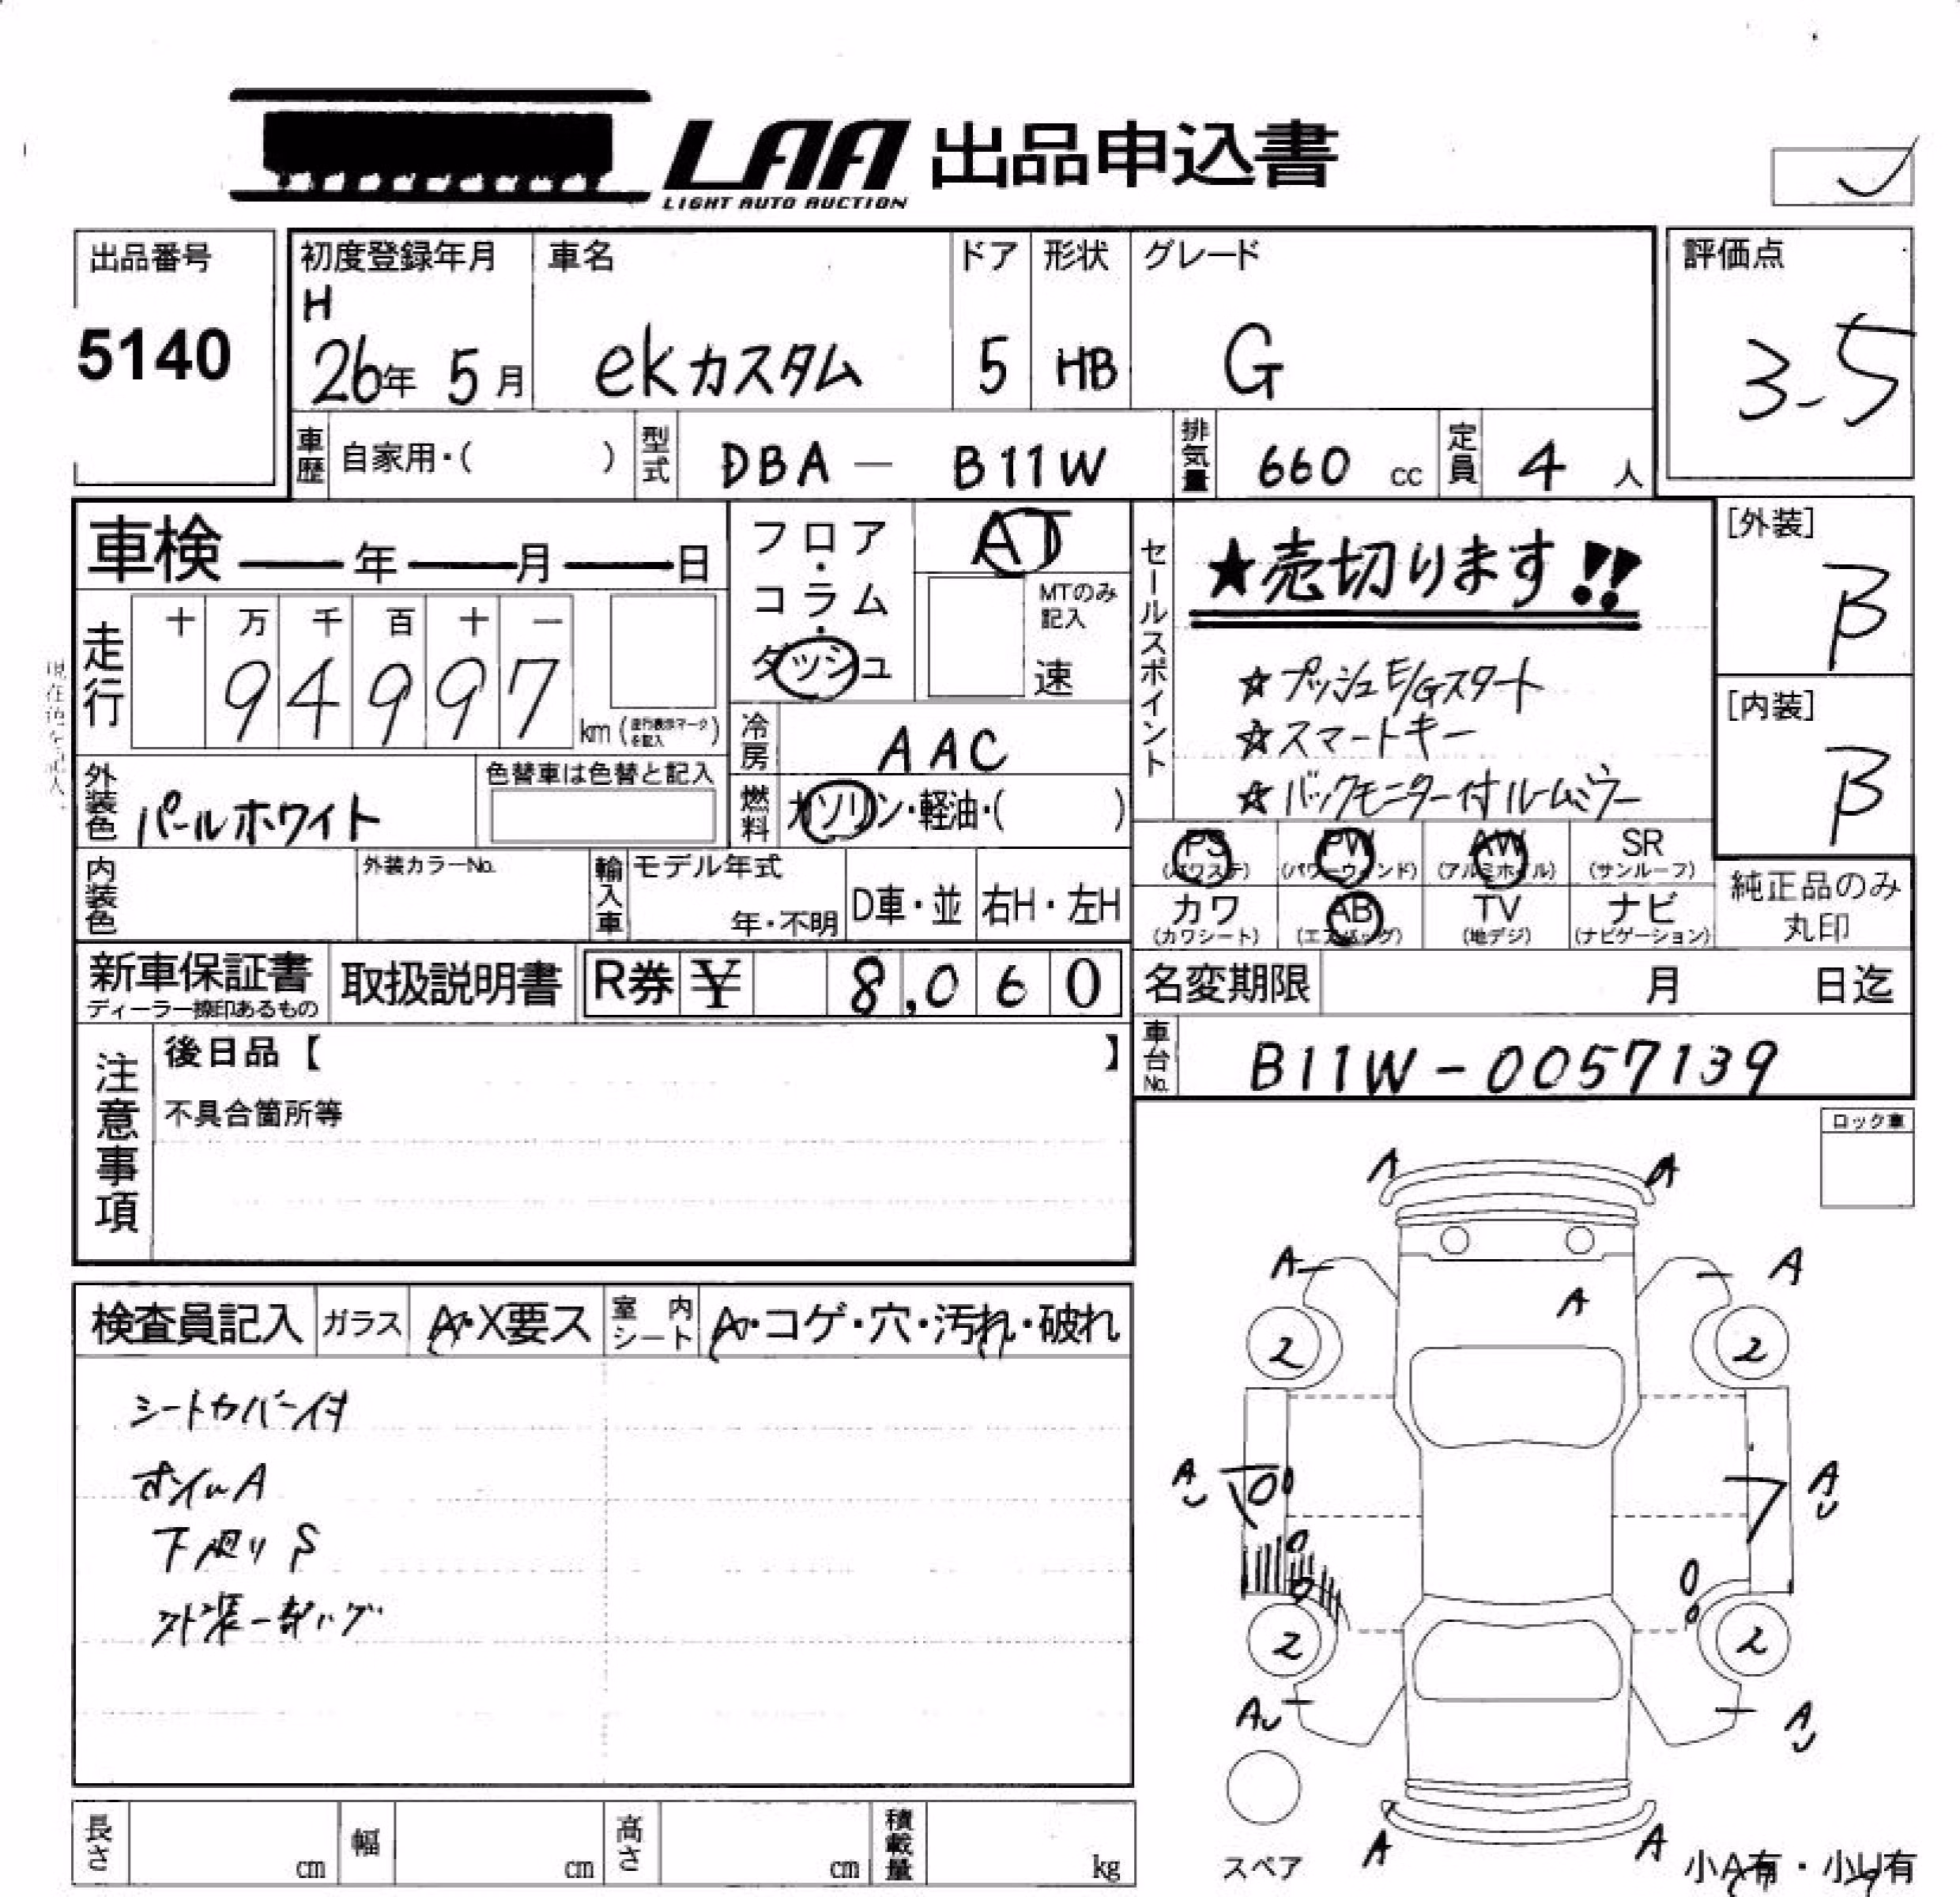 LAA 出品申込書
LIGHT AUTO AUCTION
出品番号
5140
初度登録年月
H
26年 5月
車名
ekカスタム
ドア
5
形状
HB
グレード
G
評価点
3-5
車歴 自家用・( )
型式 DBA — B11W
排気量 660 cc
定員 4 人
車検 — 年 — 月 — 日
フロア・コラム・ダッシュ
AT
MTのみ記入
速
セールスポイント
★売切ります!!
☆プッシュE/Gスタート
☆スマートキー
☆バックモニター付ルームミラー
[外装]
B
[内装]
B
走行
十 万 千 百 十 一
9 4 9 9 7
km (走行表示マークを記入)
冷房 AAC
燃料 ガソリン・軽油・( )
外装色 パールホワイト
色替車は色替と記入
PS (パワステ)
PW (パワーウィンド)
AW (アルミホイル)
SR (サンルーフ)
カワ (カワシート)
AB (エアバッグ)
TV (地デジ)
ナビ (ナビゲーション)
純正品のみ丸印
内装色
外装カラーNo.
輸入車
モデル年式
年・不明
D車・並
右H・左H
新車保証書
ディーラー捺印あるもの
取扱説明書
R券 ¥ 8,060
名変期限 月 日迄
車台No. B11W-0057139
注意事項
後日品【 】
不具合箇所等
ロック車
検査員記入
ガラス A・X要ス
室内シート A・コゲ・穴・汚れ・破れ
シートカバー付
ホイルA
下廻りS
外装一部ハゲ
A A
A A
A
2 2
A A
2 2
A A
A A
スペア
小A有・小U有
長さ cm
幅 cm
高さ cm
積載量 kg